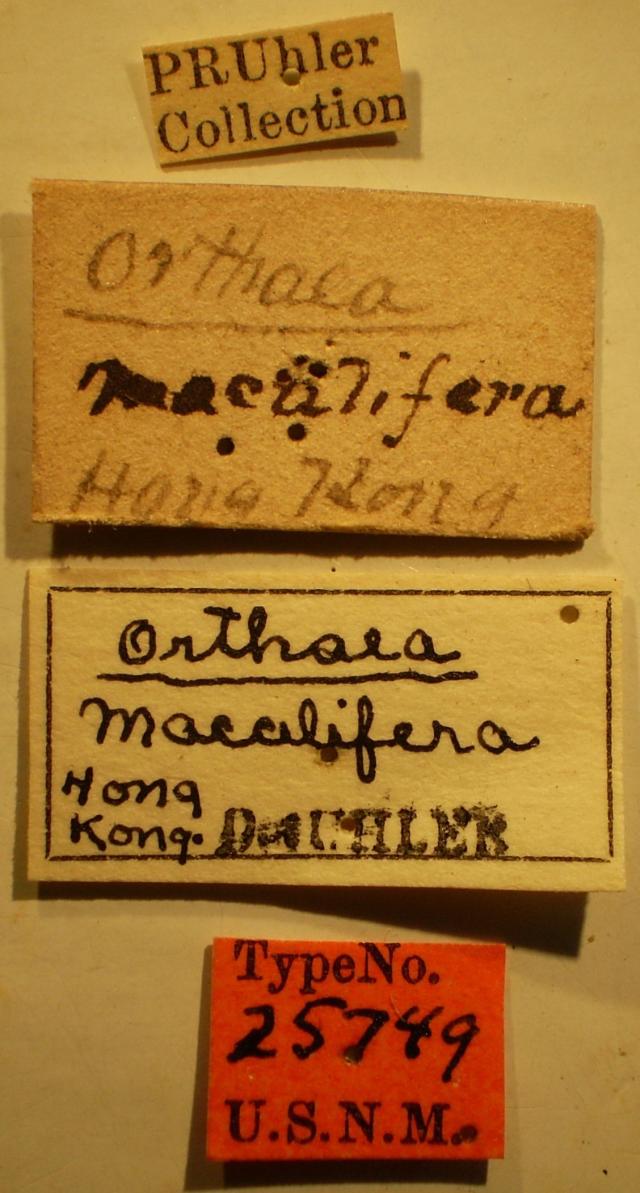 PRUhler
Collection
Orthaea
maculifera
Hong Kong
Orthaea
Maculifera
Hong
Kong. Det UHLER
TypeNo.
25749
U.S.N.M.